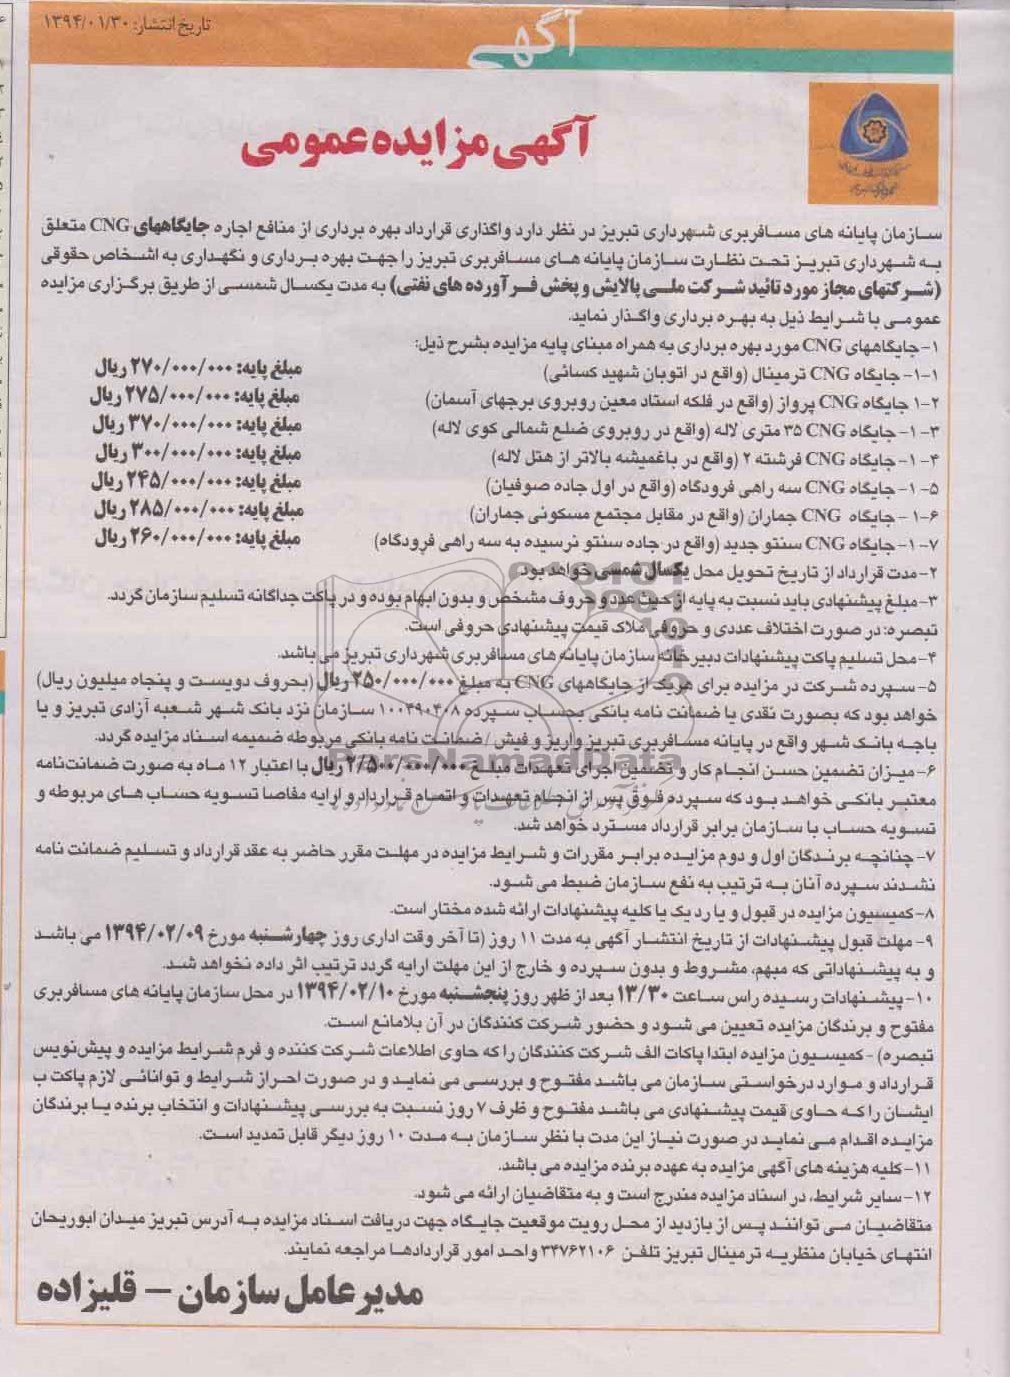 تاریخ انتشار: ۱۳۹۴/۰۱/۳۰
آگهی
آگهی مزایده عمومی
سازمان پایانه های مسافربری شهرداری تبریز در نظر دارد واگذاری قرارداد بهره برداری از منافع اجاره جایگاههای CNG متعلق
به شهرداری تبریز تحت نظارت سازمان پایانه های مسافربری تبریز را جهت بهره برداری و نگهداری به اشخاص حقوقی
(شرکتهای مجاز مورد تائید شرکت ملی پالایش و پخش فرآورده های نفتی) به مدت یکسال شمسی از طریق برگزاری مزایده
عمومی با شرایط ذیل به بهره برداری واگذار نماید.
۱-جایگاههای CNG مورد بهره برداری به همراه مبنای پایه مزایده بشرح ذیل:
۱-۱- جایگاه CNG ترمینال (واقع در اتوبان شهید کسائی) مبلغ پایه: ۲۷۰/۰۰۰/۰۰۰ ریال
۱-۲ جایگاه CNG پرواز (واقع در فلکه استاد معین روبروی برجهای آسمان) مبلغ پایه: ۲۷۵/۰۰۰/۰۰۰ ریال
۳-۱- جایگاه CNG ۳۵ متری لاله (واقع در روبروی ضلع شمالی کوی لاله) مبلغ پایه: ۳۷۰/۰۰۰/۰۰۰ ریال
۴-۱- جایگاه CNG فرشته ۲ (واقع در باغمیشه بالاتر از هتل لاله) مبلغ پایه: ۳۰۰/۰۰۰/۰۰۰ ریال
۵-۱- جایگاه CNG سه راهی فرودگاه (واقع در اول جاده صوفیان) مبلغ پایه: ۲۴۵/۰۰۰/۰۰۰ ریال
۶-۱- جایگاه CNG جماران (واقع در مقابل مجتمع مسکونی جماران) مبلغ پایه: ۲۸۵/۰۰۰/۰۰۰ ریال
۷-۱- جایگاه CNG سنتو جدید (واقع در جاده سنتو نرسیده به سه راهی فرودگاه) مبلغ پایه: ۲۶۰/۰۰۰/۰۰۰ ریال
۲-مدت قرارداد از تاریخ تحویل محل یکسال شمسی خواهد بود.
۳-مبلغ پیشنهادی باید نسبت به پایه از حیث عدد و حروف مشخص و بدون ابهام بوده و در پاکت جداگانه تسلیم سازمان گردد.
تبصره: در صورت اختلاف عددی و حروفی ملاک قیمت پیشنهادی حروفی است.
۴-محل تسلیم پاکت پیشنهادات دبیرخانه سازمان پایانه های مسافربری شهرداری تبریز می باشد.
۵-سپرده شرکت در مزایده برای هریک از جایگاههای CNG به مبلغ ۲۵۰/۰۰۰/۰۰۰ ریال (بحروف دویست و پنجاه میلیون ریال)
خواهد بود که بصورت نقدی یا ضمانت نامه بانکی بحساب سپرده ۱۰۰۴۹۰۴۰۸ سازمان نزد بانک شهر شعبه آزادی تبریز و یا
باجه بانک شهر واقع در پایانه مسافربری تبریز واریز و فیش/ضمانت نامه بانکی مربوطه ضمیمه اسناد مزایده گردد.
۶-میزان تضمین حسن انجام کار و تضمین اجرای تعهدات مبلغ ۲/۵۰۰/۰۰۰/۰۰۰ ریال با اعتبار ۱۲ ماه به صورت ضمانت‌نامه
معتبر بانکی خواهد بود که سپرده فوق پس از انجام تعهدات و اتمام قرارداد و ارایه مفاصا تسویه حساب های مربوطه و
تسویه حساب با سازمان برابر قرارداد مسترد خواهد شد.
۷-چنانچه برندگان اول و دوم مزایده برابر مقررات و شرایط مزایده در مهلت مقرر حاضر به عقد قرارداد و تسلیم ضمانت نامه
نشدند سپرده آنان به ترتیب به نفع سازمان ضبط می شود.
۸-کمیسیون مزایده در قبول و یا رد یک یا کلیه پیشنهادات ارائه شده مختار است.
۹-مهلت قبول پیشنهادات از تاریخ انتشار آگهی به مدت ۱۱ روز (تا آخر وقت اداری روز چهارشنبه مورخ ۱۳۹۴/۰۲/۰۹ می باشد
و به پیشنهاداتی که مبهم، مشروط و بدون سپرده و خارج از این مهلت ارایه گردد ترتیب اثر داده نخواهد شد.
۱۰-پیشنهادات رسیده راس ساعت ۱۳/۳۰ بعد از ظهر روز پنجشنبه مورخ ۱۳۹۴/۰۲/۱۰ در محل سازمان پایانه های مسافربری
مفتوح و برندگان مزایده تعیین می شود و حضور شرکت کنندگان در آن بلامانع است.
تبصره) -کمیسیون مزایده ابتدا پاکات الف شرکت کنندگان را که حاوی اطلاعات شرکت کننده و فرم شرایط مزایده و پیش‌نویس
قرارداد و موارد درخواستی سازمان می باشد مفتوح و بررسی می نماید و در صورت احراز شرایط و توانائی لازم پاکت ب
ایشان را که حاوی قیمت پیشنهادی می باشد مفتوح و ظرف ۷ روز نسبت به بررسی پیشنهادات و انتخاب برنده یا برندگان
مزایده اقدام می نماید در صورت نیاز این مدت با نظر سازمان به مدت ۱۰ روز دیگر قابل تمدید است.
۱۱-کلیه هزینه های آگهی مزایده به عهده برنده مزایده می باشد.
۱۲-سایر شرایط، در اسناد مزایده مندرج است و به متقاضیان ارائه می شود.
متقاضیان می توانند پس از بازدید از محل رویت موقعیت جایگاه جهت دریافت اسناد مزایده به آدرس تبریز میدان ابوریحان
انتهای خیابان منظریه ترمینال تبریز تلفن ۳۴۷۶۲۱۰۶ واحد امور قراردادها مراجعه نمایند.
مدیر عامل سازمان – قلیزاده
ParsNamadData